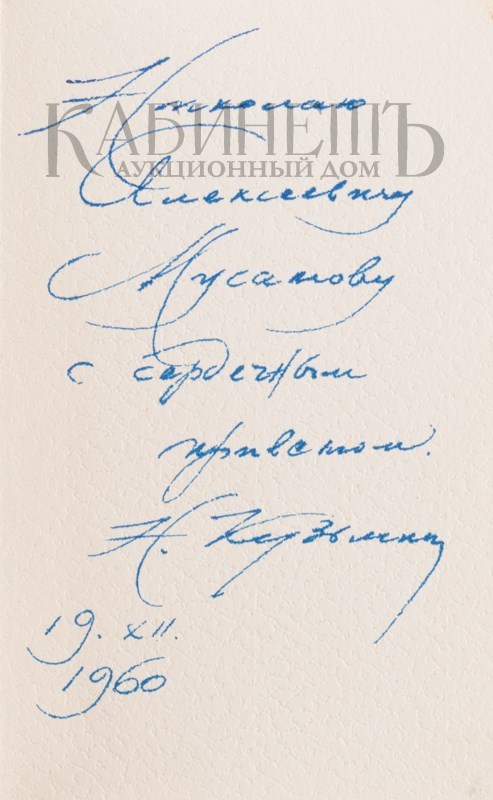 Николаю
КАБИНЕТЪ
АУКЦИОННЫЙ ДОМ
Алексеевичу
Мусатову
с сердечным
приветом.
Н. Кузьмин
19. XII.
1960